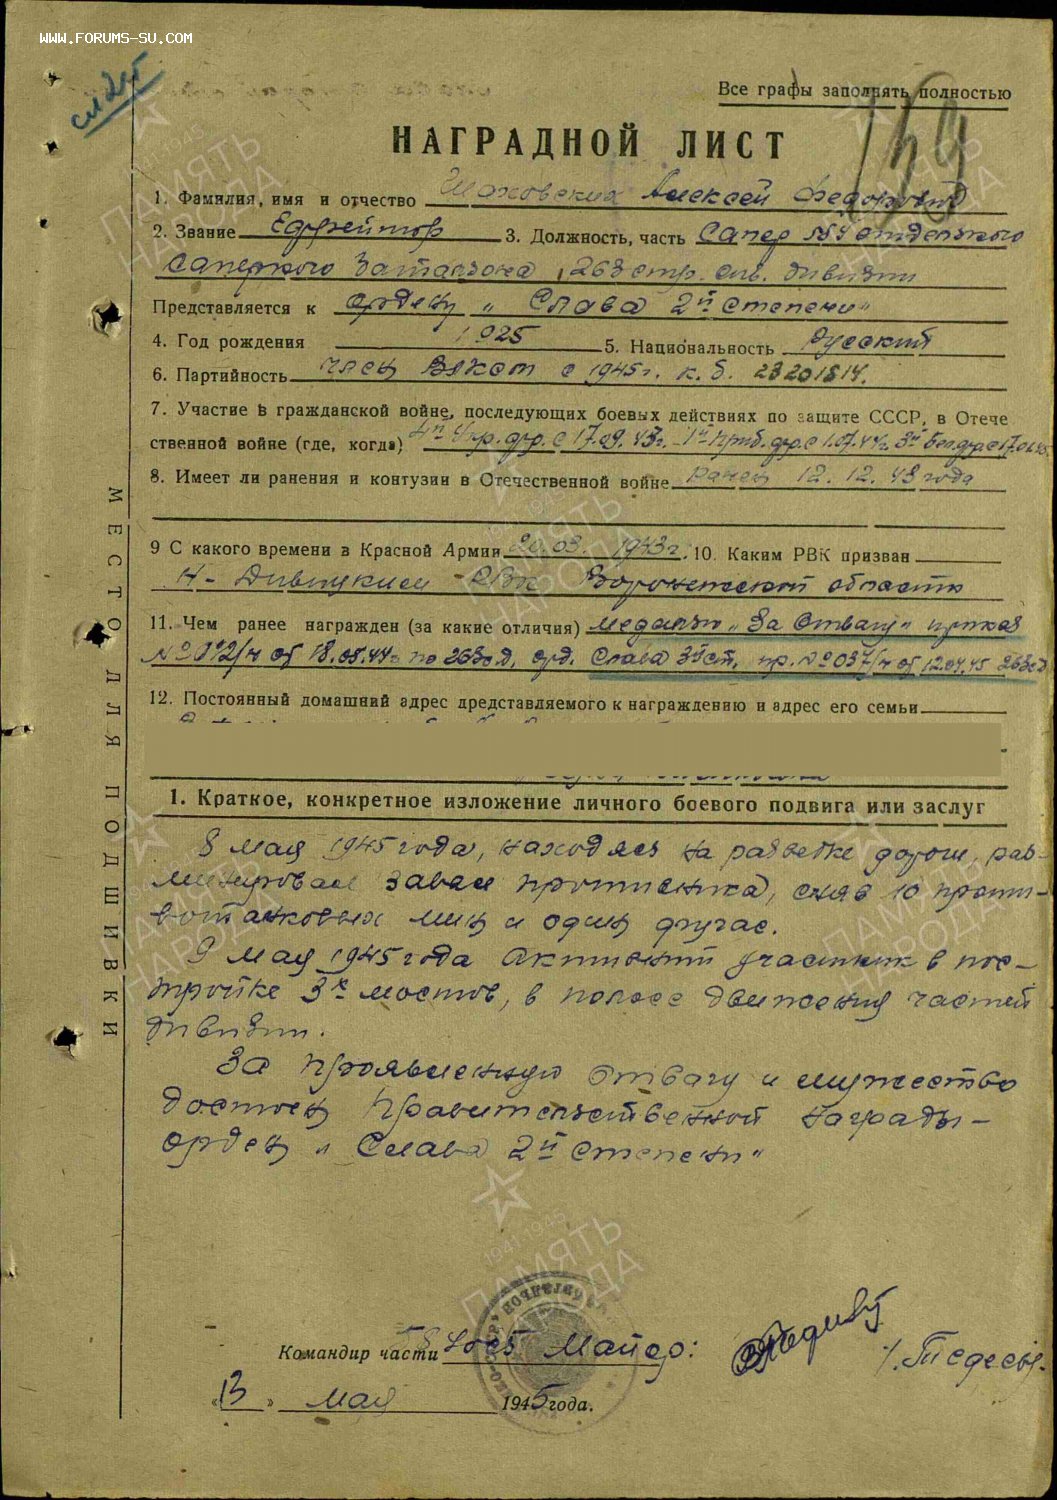 WWW.FORUMS-SU.COM
см 2й
Все графы заполнять полностью
159
НАГРАДНОЙ ЛИСТ
1. Фамилия, имя и отчество Шаховских Алексей Федорович
2. Звание Ефрейтор 3. Должность, часть Сапер 584 отдельного
саперного батальона, 263 стр. сив. дивизии
Представляется к орден „Слава 2й степени"
4. Год рождения 1925 5. Национальность Русский
6. Партийность член ВЛКСМ с 1945г. к.б. 23201814.
7. Участие в гражданской войне, последующих боевых действиях по защите СССР, в Отече
ственной войне (где, когда) 4й Укр. фр. с 17.09.43г. 1й Приб. фр. с 1.07.44г. 3й Бел. фр. с
8. Имеет ли ранения и контузии в Отечественной войне ранен 12.12.43 года
9 С какого времени в Красной Армии 20.03. 1943г. 10. Каким РВК призван
Н-Девицким РВК Воронежской области
11. Чем ранее награжден (за какие отличия) медалью „За Отвагу" приказ
№ 012/н от 18.08.44г. по 263сд, орд. Слава 3й ст. пр. № 037/н от 12.04.45 263сд
12. Постоянный домашний адрес дредставляемого к награждению и адрес его семьи
1. Краткое, конкретное изложение личного боевого подвига или заслуг
8 мая 1945 года, находясь на разведке дороги, раз-
минировал завал противника, сняв 10 проти-
вотанковых мин и один фугас.
9 мая 1945 года активный участник в пос-
тройке 3х мостов, в полосе движения частей
дивизии.
За проявленную отвагу и мужество
достоин правительственной награды-
орден „Слава 2й степени"
Командир части 584 осб Майор:
„13" мая 1945 года.
МЕСТО ДЛЯ ПОДШИВКИ
1941-1945
ПАМЯТЬ
НАРОДА